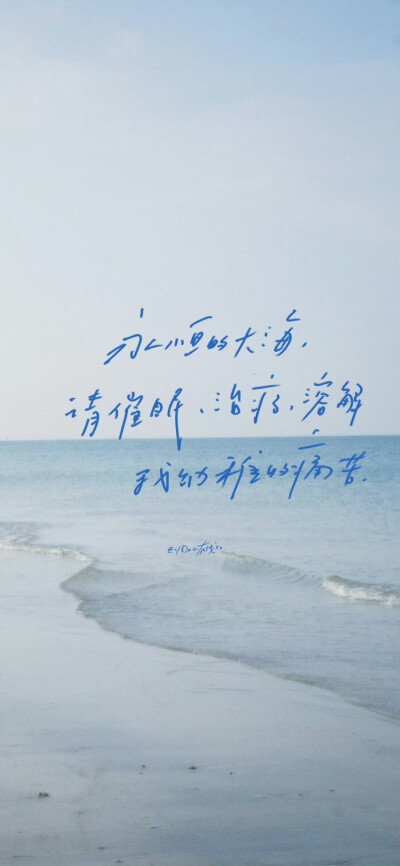 永恒的大海,
请催眠、治疗、溶解
我幼稚的痛苦.